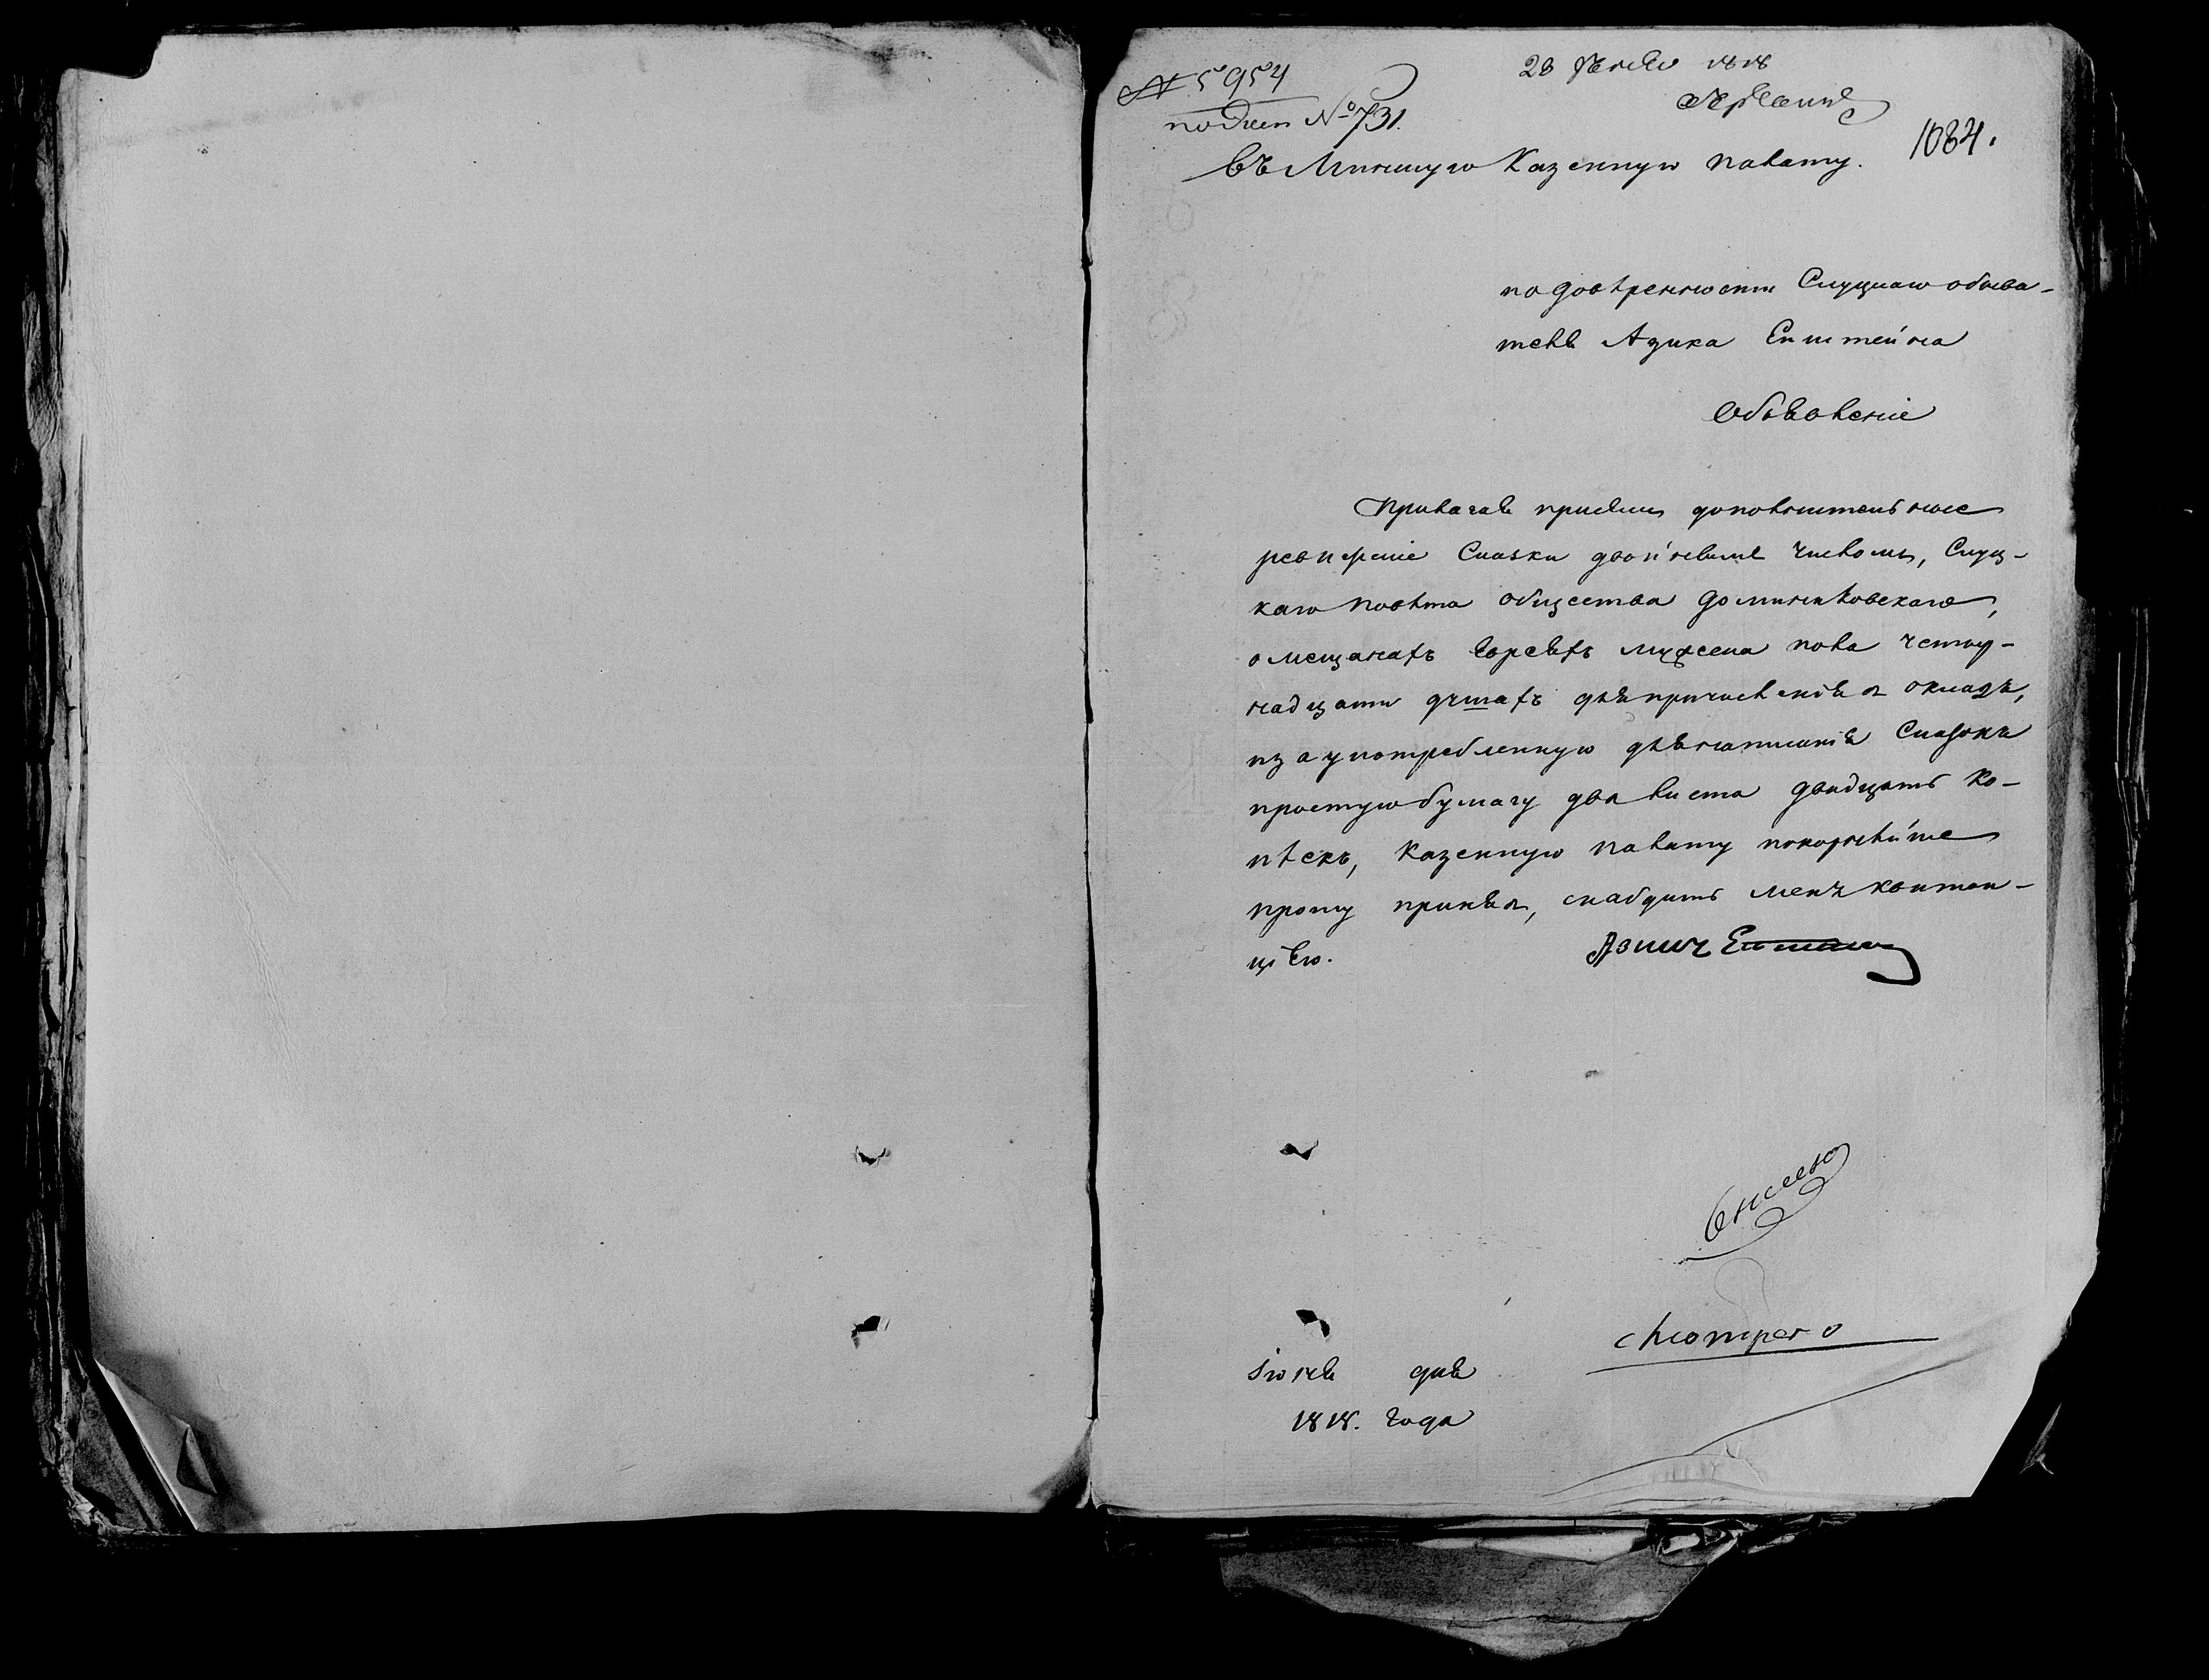 № 5954
подъем № 731.
28 Июня 1818
1084.
Въ Минскую Казенную палату.
по довѣренности Слуцкаго обыва-
теля Азика Епштейна
Объявленіе
Прилагая присемъ дополнительные
ревизскіе Сказки двойнымъ числомъ, Слуц-
каго повѣта общества
о мещанахъ Евреяхъ мужеска пола четыр-
надцати душахъ для причисленія в окладъ,
и за употребленную для написанія Сказокъ
простую бумагу два листа двадцать ко-
пѣекъ, Казенную палату покорнѣйше
прошу принявъ, снабдить меня квитан-
цією.
Іюня дня
1818. Года